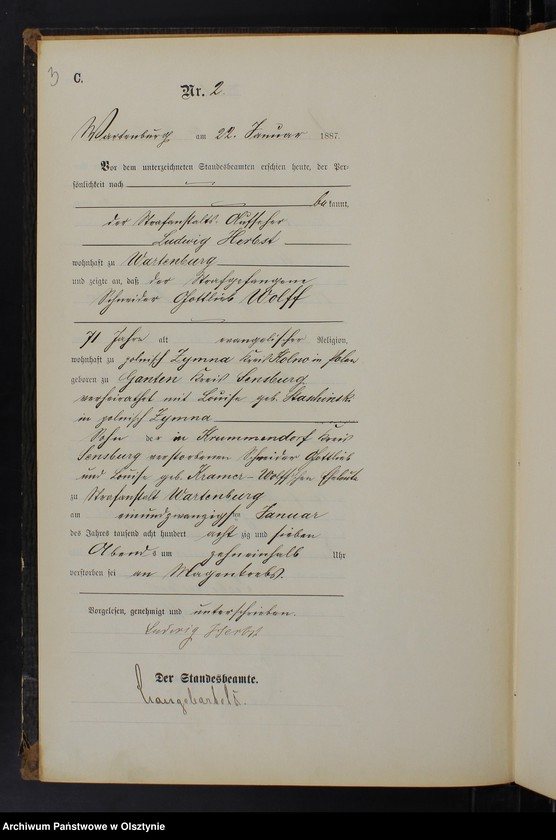 3 C.
Nr. 2.
Wartenburg am 22. Januar 1887.
Vor dem unterzeichneten Standesbeamten erschien heute, der Per-
sönlichkeit nach
bekannt,
der Strafanstalts-Aufseher
Ludwig Herbst
wohnhaft zu Wartenburg
und zeigte an, daß der Strafgefangene
Schneider Gottlieb Wolff
71 Jahre alt evangelischer Religion,
wohnhaft zu polnisch Zymna Kreis Kolno in Polen
geboren zu Ganten Kreis Sensburg
verheirathet mit Louise geb. Stachinsk
in polnisch Zymna
Sohn der in Krummendorf Kreis
Sensburg verstorbenen Schneider Gottlieb
und Louise geb. Kramer-Wolff'schen Eheleute
zu Strafanstalt Wartenburg
am einundzwanzigsten Januar
des Jahres tausend acht hundert acht zig und sieben
Abends um zehneinhalb Uhr
verstorben sei an Magenkrebs.
Vorgelesen, genehmigt und unterschrieben.
Ludwig Herbst
Der Standesbeamte.
Archiwum Państwowe w Olsztynie